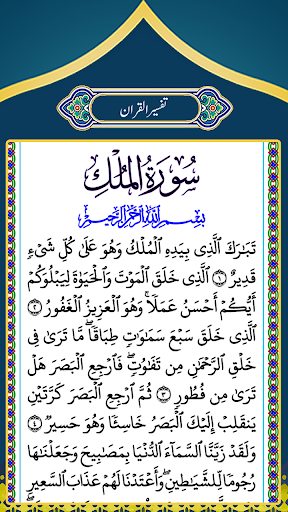 تفسیر القرآن
سُورَةُ الْمُلْكِ
بِسْمِ اللَّهِ الرَّحْمَٰنِ الرَّحِيمِ
تَبَارَكَ ٱلَّذِي بِيَدِهِ ٱلْمُلْكُ وَهُوَ عَلَىٰ كُلِّ شَيْءٍ
قَدِيرٌ ۝١ ٱلَّذِي خَلَقَ ٱلْمَوْتَ وَٱلْحَيَوٰةَ لِيَبْلُوَكُمْ
أَيُّكُمْ أَحْسَنُ عَمَلًا ۚ وَهُوَ ٱلْعَزِيزُ ٱلْغَفُورُ ۝٢
ٱلَّذِي خَلَقَ سَبْعَ سَمَٰوَٰتٍ طِبَاقًا ۖ مَّا تَرَىٰ فِي
خَلْقِ ٱلرَّحْمَٰنِ مِن تَفَٰوُتٍ ۖ فَٱرْجِعِ ٱلْبَصَرَ هَلْ
تَرَىٰ مِن فُطُورٍ ۝٣ ثُمَّ ٱرْجِعِ ٱلْبَصَرَ كَرَّتَيْنِ
يَنقَلِبْ إِلَيْكَ ٱلْبَصَرُ خَاسِئًا وَهُوَ حَسِيرٌ ۝٤
وَلَقَدْ زَيَّنَّا ٱلسَّمَآءَ ٱلدُّنْيَا بِمَصَٰبِيحَ وَجَعَلْنَٰهَا
رُجُومًا لِّلشَّيَٰطِينِ ۖ وَأَعْتَدْنَا لَهُمْ عَذَابَ ٱلسَّعِيرِ